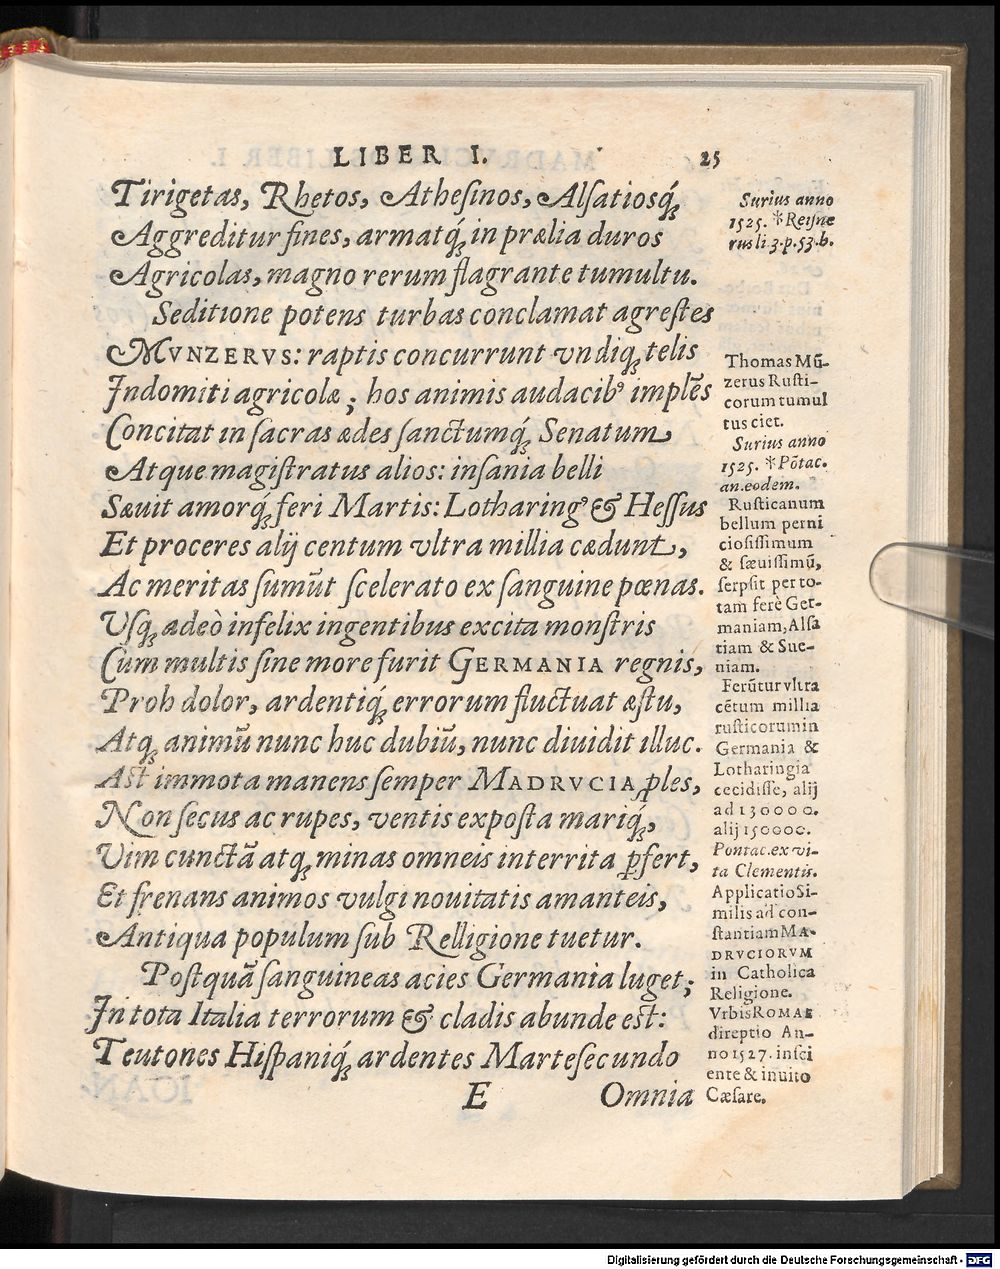 LIBER I. 25
Tirigetas, Rhetos, Athesinos, Alsatiosq́;
Aggreditur fines, armatq́; in prælia duros
Agricolas, magno rerum flagrante tumultu.
Seditione potens turbas conclamat agrestes
MVNZERVS: raptis concurrunt vndiq; telis
Indomiti agricolæ; hos animis audacibꝰ implẽs
Concitat in sacras ædes sanctumq́; Senatum
Atque magistratus alios: insania belli
Sæuit amorq́; feri Martis: Lotharingꝰ & Hessus
Et proceres alij centum vltra millia cædunt,
Ac meritas sumũt scelerato ex sanguine pœnas.
Vsq; adeò infelix ingentibus excita monstris
Cum multis sine more furit GERMANIA regnis,
Proh dolor, ardentiq́; errorum fluctuat æstu,
Atq; animũ nunc huc dubiũ, nunc diuidit illuc.
Ast immota manens semper MADRVCIA ꝓles,
Non secus ac rupes, ventis exposta mariq;,
Vim cunctã atq; minas omneis interrita ꝑfert,
Et frenans animos vulgi nouitatis amanteis,
Antiqua populum sub Relligione tuetur.
Postquã sanguineas acies Germania luget;
In tota Italia terrorum & cladis abunde est:
Teutones Hispaniq́; ardentes Marte secundo
E Omnia
Surius anno
1525. *Reisne
rus li. 3. p. 53. b.
Thomas Mũ-
zerus Rusti-
corum tumul
tus ciet.
Surius anno
1525. *Põtac.
an. eodem.
Rusticanum
bellum perni
ciosissimum
& sæuissimũ,
serpsit per to-
tam ferè Ger-
maniam, Alsa
tiam & Sue-
niam.
Ferũtur vltra
cẽtum millia
rusticorum in
Germania &
Lotharingia
cecidisse, alij
ad 130000.
alij 150000.
Pontac. ex vi-
ta Clementis.
Applicatio Si-
milis ad con-
stantiam MA-
DRVCIORVM
in Catholica
Religione.
Vrbis ROMAE
direptio An-
no 1527. insci
ente & inuito
Cæsare.
Digitalisierung gefördert durch die Deutsche Forschungsgemeinschaft - DFG